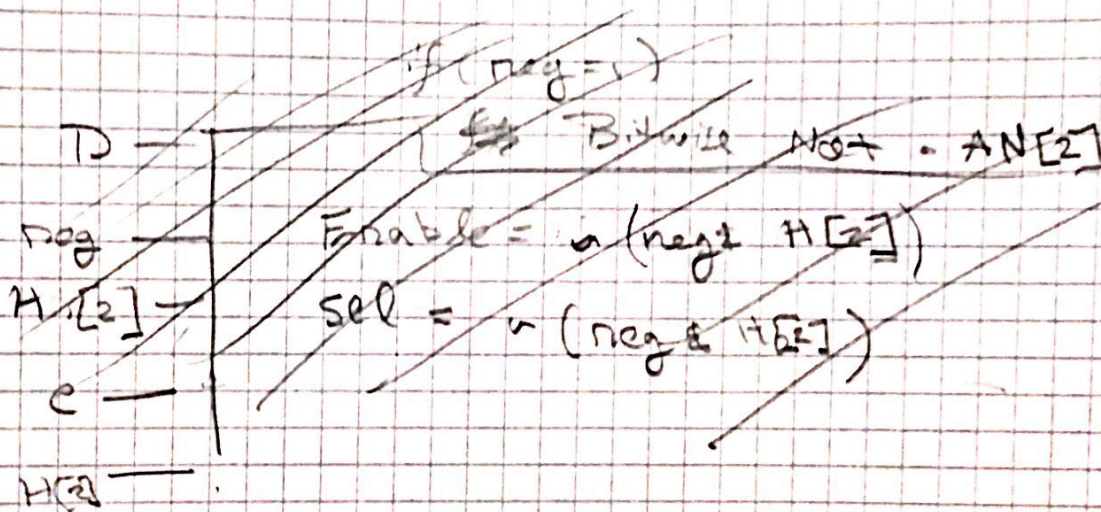 if (neg=1)
D
Bitwise Not . AN[2]
neg Enable = ~(neg & H[2])
H[2] sel = ~(neg & H[2])
e
H[2]